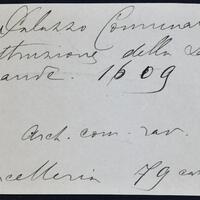 Palazzo Comunal
struzione della sa
ande. 1609
Arch. com. rav.
celleria 79 ca